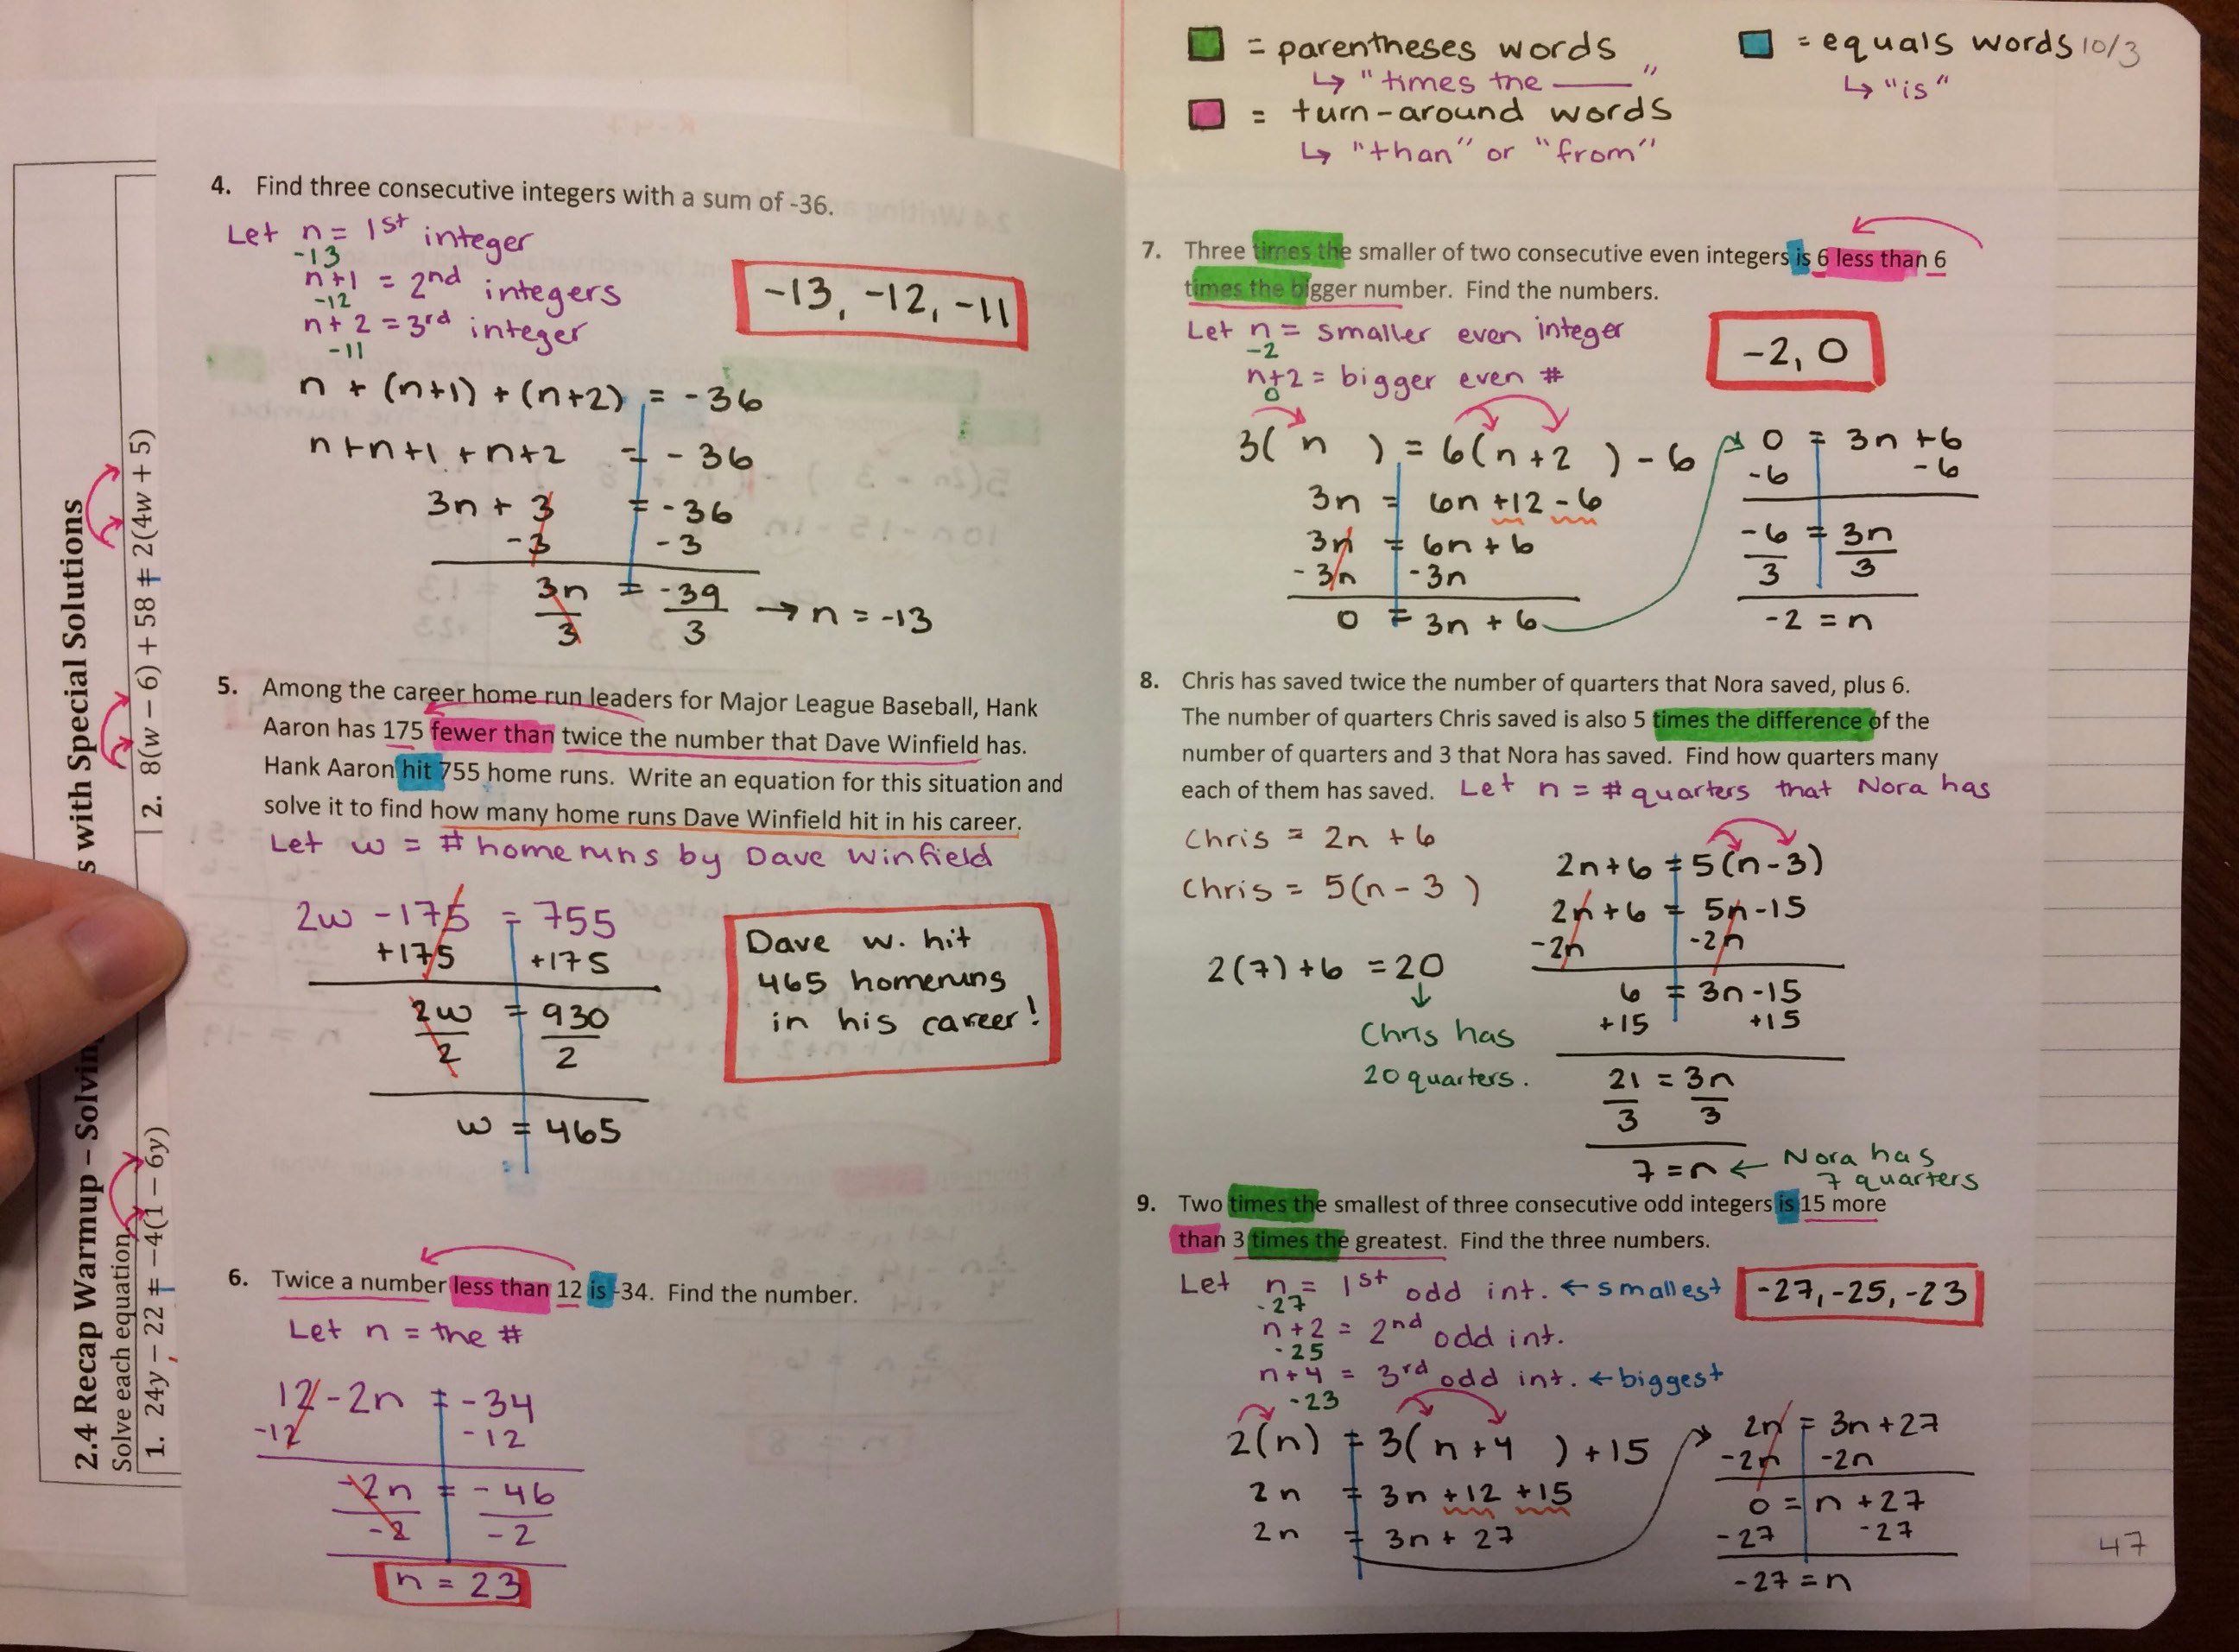 2.4 Recap Warmup – Solving
s with Special Solutions
Solve each equation.
1. 24y – 22 = –4(1 – 6y)
2. 8(w – 6) + 58 = 2(4w + 5)
4. Find three consecutive integers with a sum of -36.
Let n = 1st integer
-13
n+1 = 2nd integers
-12
n+2 = 3rd integer
-11
-13, -12, -11
n + (n+1) + (n+2) = -36
n+n+1+n+2 = -36
3n + 3 = -36
-3 -3
3n = -39 → n = -13
3 3
5. Among the career home run leaders for Major League Baseball, Hank
Aaron has 175 fewer than twice the number that Dave Winfield has.
Hank Aaron hit 755 home runs. Write an equation for this situation and
solve it to find how many home runs Dave Winfield hit in his career.
Let w = # homeruns by Dave Winfield
2w - 175 = 755
+175 +175
2w = 930
2 2
w = 465
Dave W. hit
465 homeruns
in his career!
6. Twice a number less than 12 is -34. Find the number.
Let n = the #
12 - 2n = -34
-12 -12
-2n = -46
-2 -2
n = 23
= parentheses words
↳ "times the ____"
= turn-around words
↳ "than" or "from"
= equals words
↳ "is"
10/3
7. Three times the smaller of two consecutive even integers is 6 less than 6
times the bigger number. Find the numbers.
Let n = smaller even integer
-2
n+2 = bigger even #
0
-2, 0
3( n ) = 6(n+2 ) - 6
3n = 6n +12 -6
3n = 6n + 6
-3n -3n
0 = 3n + 6
0 = 3n + 6
-6 -6
-6 = 3n
3 3
-2 = n
8. Chris has saved twice the number of quarters that Nora saved, plus 6.
The number of quarters Chris saved is also 5 times the difference of the
number of quarters and 3 that Nora has saved. Find how quarters many
each of them has saved. Let n = # quarters that Nora has
Chris = 2n + 6
Chris = 5(n - 3 )
2(7) + 6 = 20
↓
Chris has
20 quarters.
2n+6 = 5(n-3)
2n+6 = 5n-15
-2n -2n
6 = 3n-15
+15 +15
21 = 3n
3 3
7 = n ← Nora has
7 quarters
9. Two times the smallest of three consecutive odd integers is 15 more
than 3 times the greatest. Find the three numbers.
Let n = 1st odd int. ← smallest
-27
n+2 = 2nd odd int.
-25
n+4 = 3rd odd int. ← biggest
-23
-27, -25, -23
2(n) = 3( n+4 ) + 15
2n = 3n +12 +15
2n = 3n + 27
2n = 3n + 27
-2n -2n
0 = n + 27
-27 -27
-27 = n
47